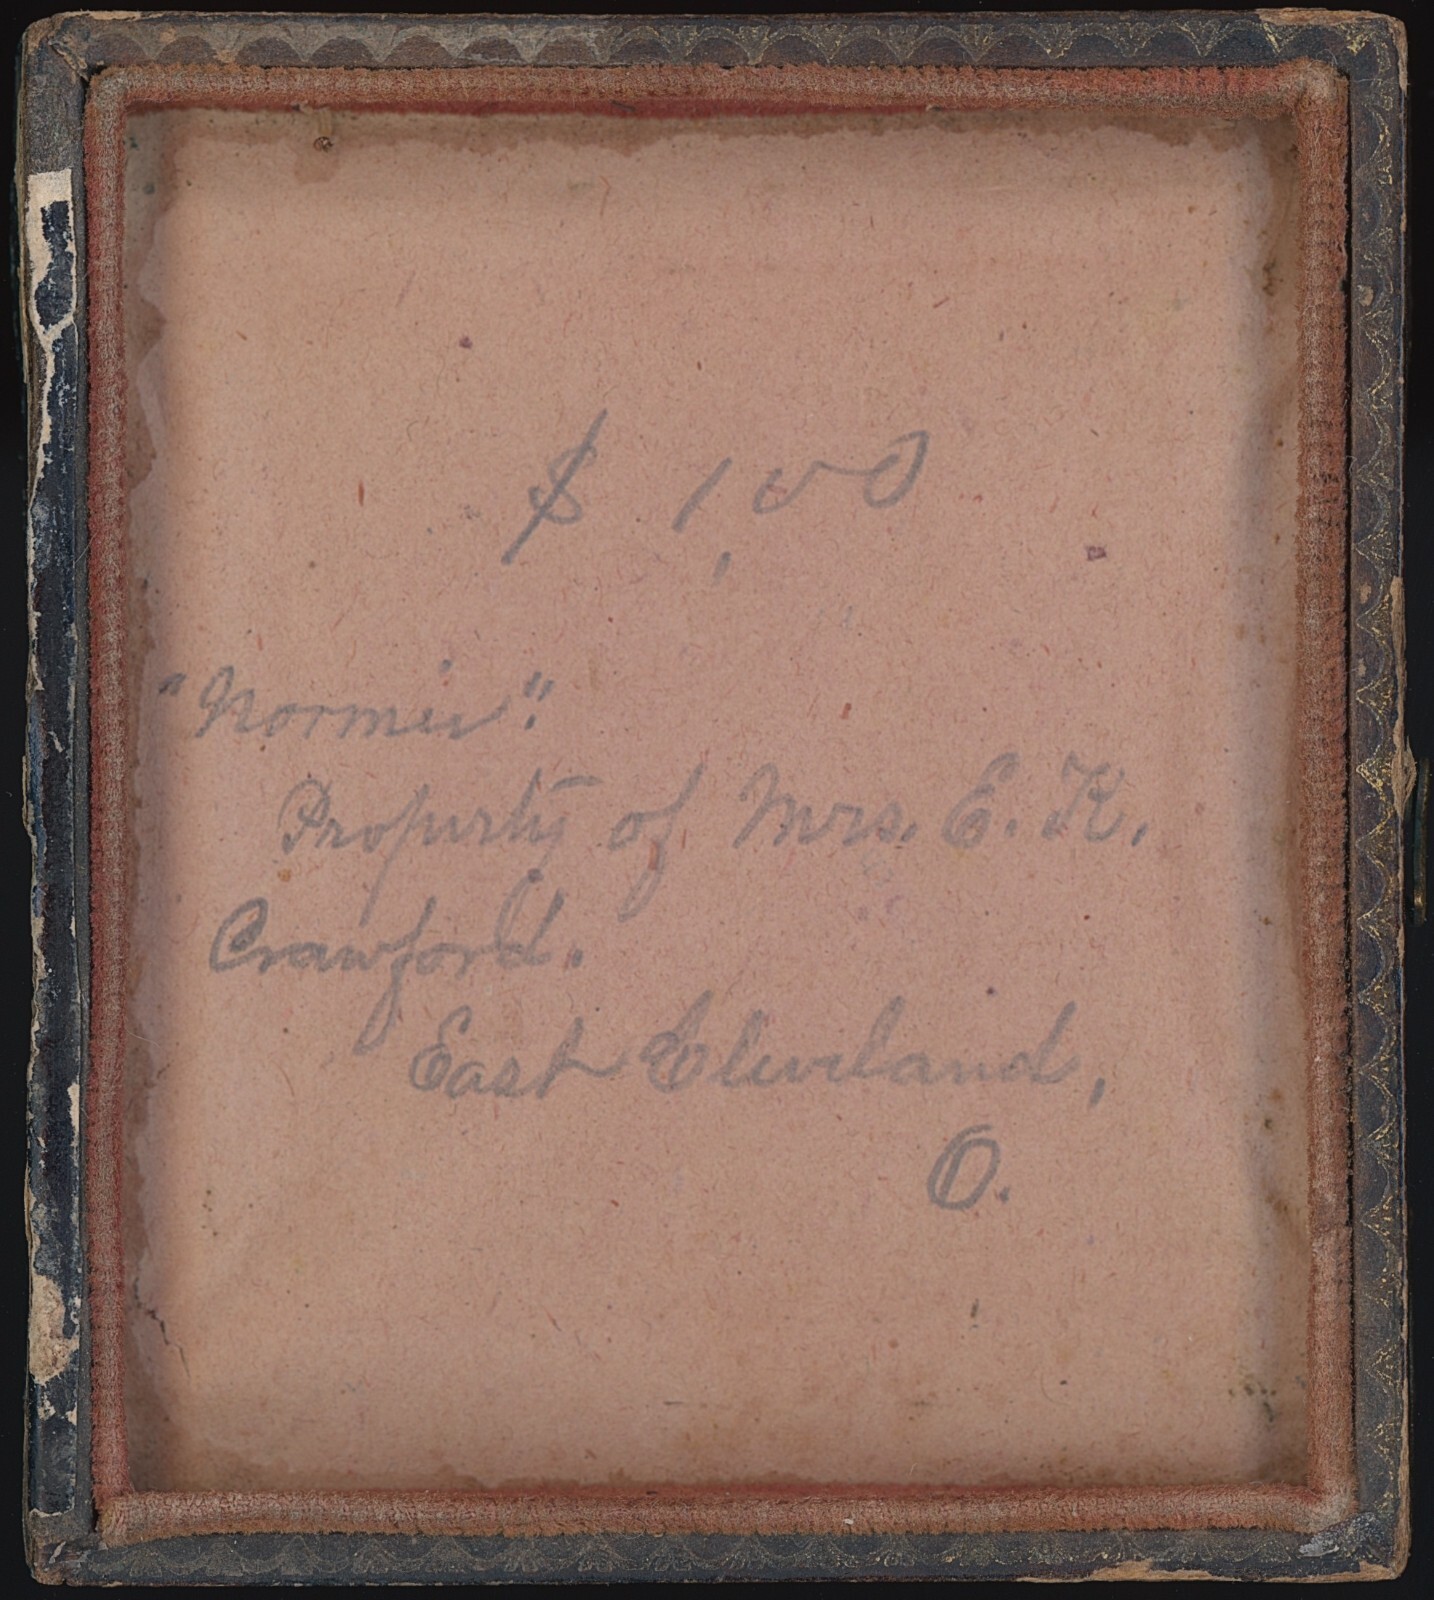 $ 1,00
"Normie".
Property of Mrs. E. K.
Crawford.
East Cleveland,
O.